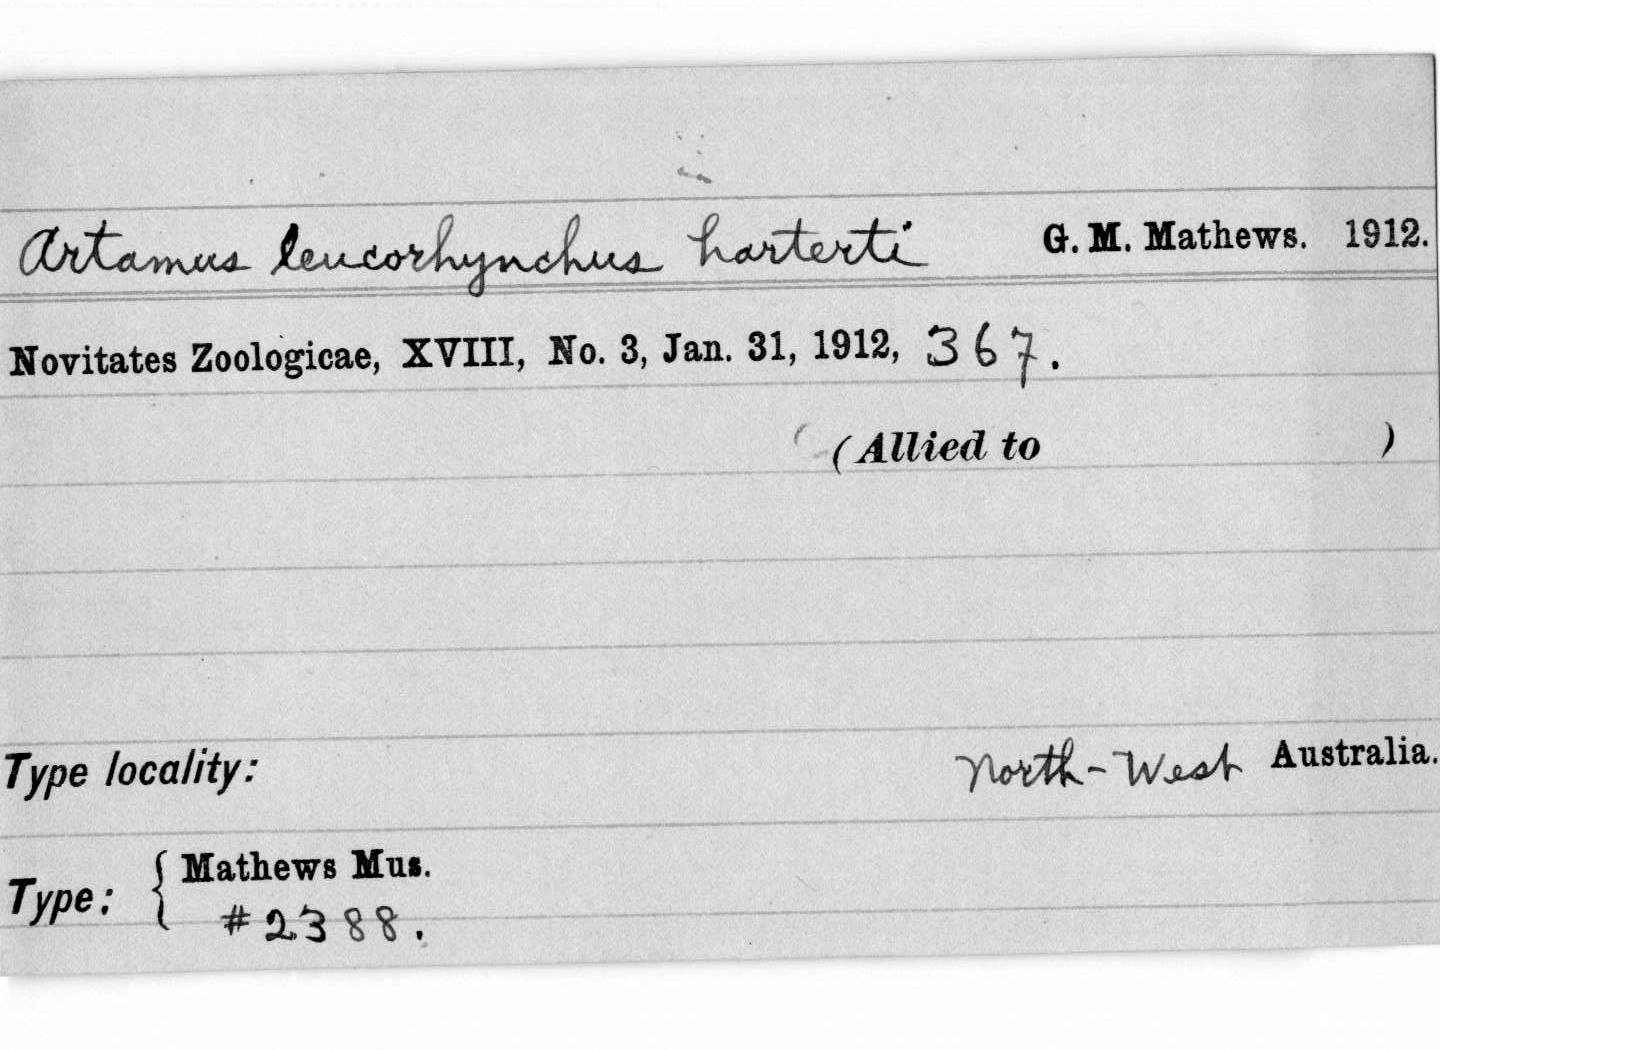 Artamus leucorhynchus harterti G. M. Mathews. 1912.
Novitates Zoologicae, XVIII, No. 3, Jan. 31, 1912, 367.
(Allied to )
Type locality: North-West Australia.
Type: { Mathews Mus.
#2388.